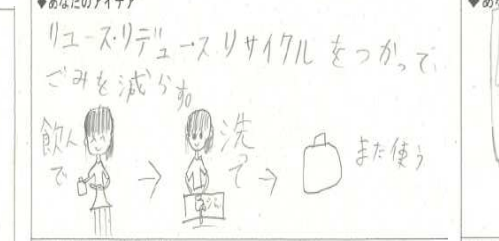 ◆あなたのアイデア
リユース・リデュースリサイクルをつかって、
ごみを減らす。
飲んで
洗って
また使う